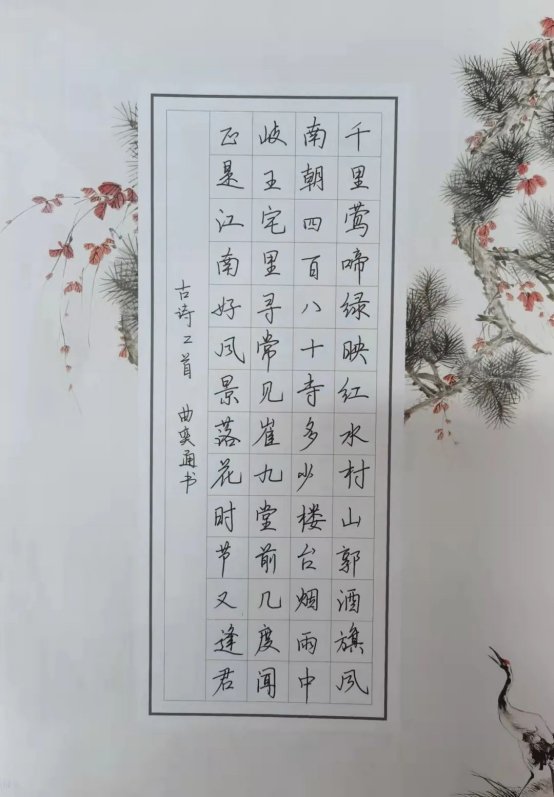 千里莺啼绿映红水村山郭酒旗风
南朝四百八十寺多少楼台烟雨中
岐王宅里寻常见崔九堂前几度闻
正是江南好风景落花时节又逢君
古诗二首 曲奕通书